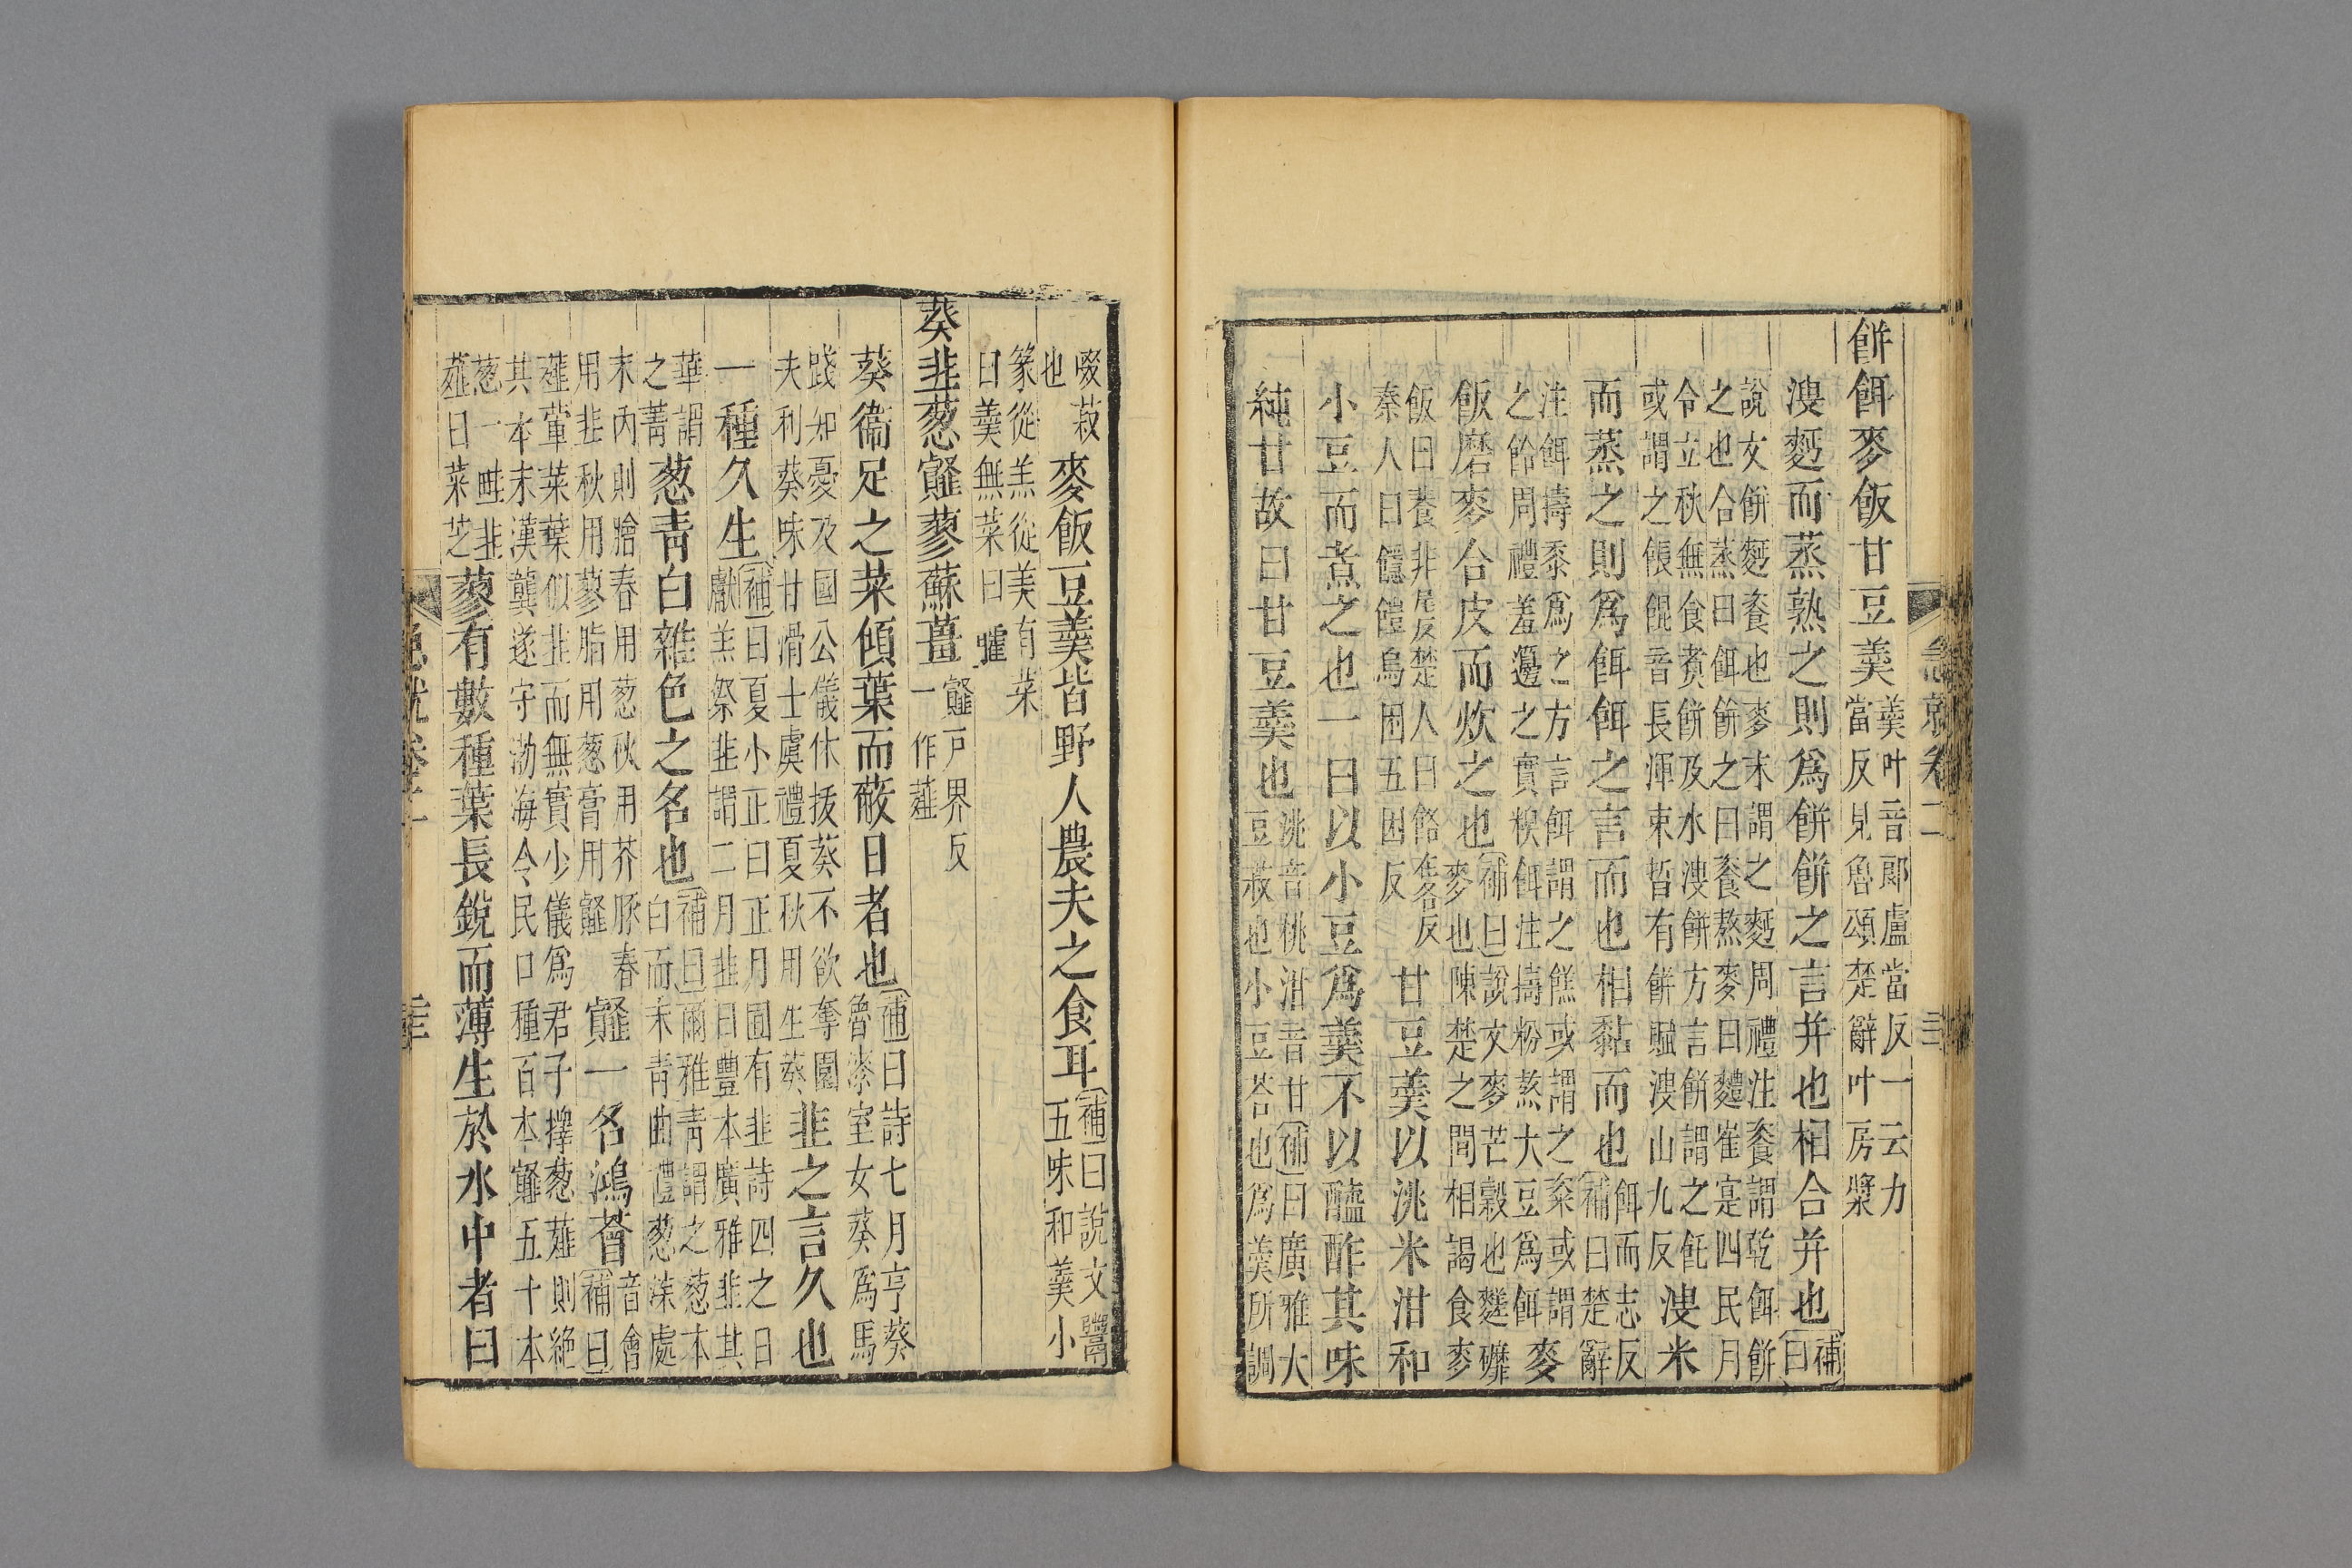 急就卷二
餠餌麥飯甘豆羹羹叶音郎盧當反一云力當反見魯頌楚辭叶房漿
溲麪而蒸熟之則爲餠餠之言并也相合并也補曰
說文餠麪餈也麥末謂之麪周禮注餈謂乾餌餠之也合蒸曰餌餠之曰餈熬麥曰麷崔寔四民月
令立秋無食煑餠及水溲餠方言餠謂之飥或謂之餦餛音長渾束晳有餠賦溲山九反溲米
而蒸之則爲餌餌之言而也相黏而也餌而志反補曰楚辭
注餌擣黍爲之方言餌謂之餻或謂之粢或謂之餄周禮羞籩之實糗餌注擣粉蒸大豆爲餌麥
飯磨麥合皮而炊之也補曰說文麥芒穀也䴲礳麥也陳楚之間相謁食麥
飯曰餥非尾反楚人曰䬤在各反秦人曰䭡䭓烏困五困反甘豆羹以洮米泔和
小豆而煮之也一曰以小豆爲羹不以醯酢其味
純甘故曰甘豆羹也洮音桃泔音甘補曰廣雅大豆菽也小豆荅也爲羹所調
啜菽也麥飯豆羹皆野人農夫之食耳補曰說文䰞五味和羹小
篆從羔從美有菜曰羹無菜曰臛
葵韭葱䪥蓼蘇薑䪥戸界反一作薤
葵衞足之菜傾葉而蔽日者也補曰詩七月亨葵魯漆室女葵爲馬
踐知憂及國公儀休拔葵不欲奪園夫利葵味甘滑士虞禮夏秋用生葵韭之言久也
一種久生補曰夏小正曰正月囿有韭詩四之日獻羔祭韭謂二月韭曰豐本廣雅韭其
華謂之菁葱靑白雜色之名也補曰爾雅靑謂之葱本白而末靑曲禮葱渫處
末內則膾春用葱秋用芥豚春用韭秋用蓼脂用葱膏用䪥䪥一名鴻薈音會補曰
薤葷菜葉似韭而無實少儀爲君子擇葱薤則絶其本末漢龔遂守渤海令民口種百本䪥五十本
葱一畦韭薤曰菜芝蓼有數種葉長銳而薄生於水中者曰
急就卷二